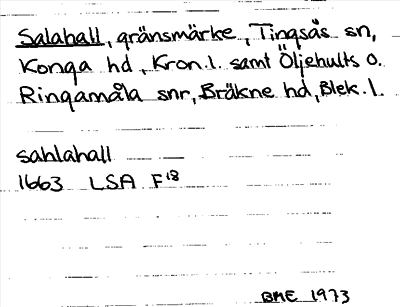 Salahall, gränsmärke, Tingsås sn,
Konga hd, Kron.l. samt Öljehults o.
Ringamåla snr, Bräkne hd, Blek.l.
sahlahall
1663 LSA F18
BME 1973